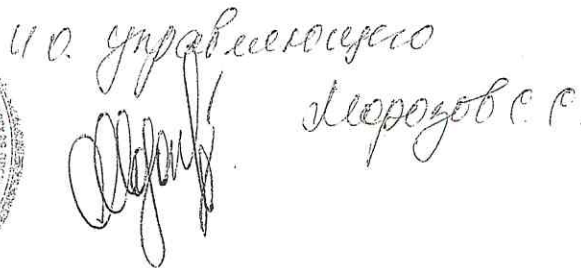 ИО. управляющего
Морозов С. С.